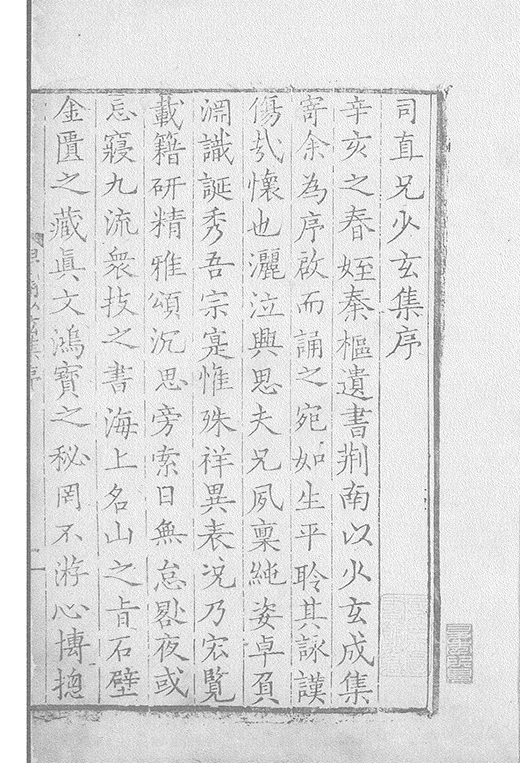 司直兄少玄集序
辛亥之春姪秦樞遺書荆南以少玄成集
寄余為序啟而誦之宛如生平聆其詠謨
傷哉懷也灑泣興思夫兄夙稟純姿卓負
淵識誕秀吾宗寔惟殊祥異表況乃宏覽
載籍研精雅頌沉思旁索日無怠晷夜或
忘寢九流衆技之書海上名山之旨石壁
金匱之藏眞文鴻寶之秘罔不游心博摠